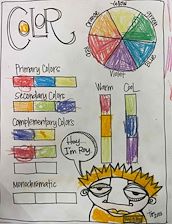 COLOR
Yellow
Orange
green
Red
blue
Violet
Primary Colors
Warm
Cool
Secondary Colors
Complementary Colors
Monochromatic
Hey...
I'm Roy.